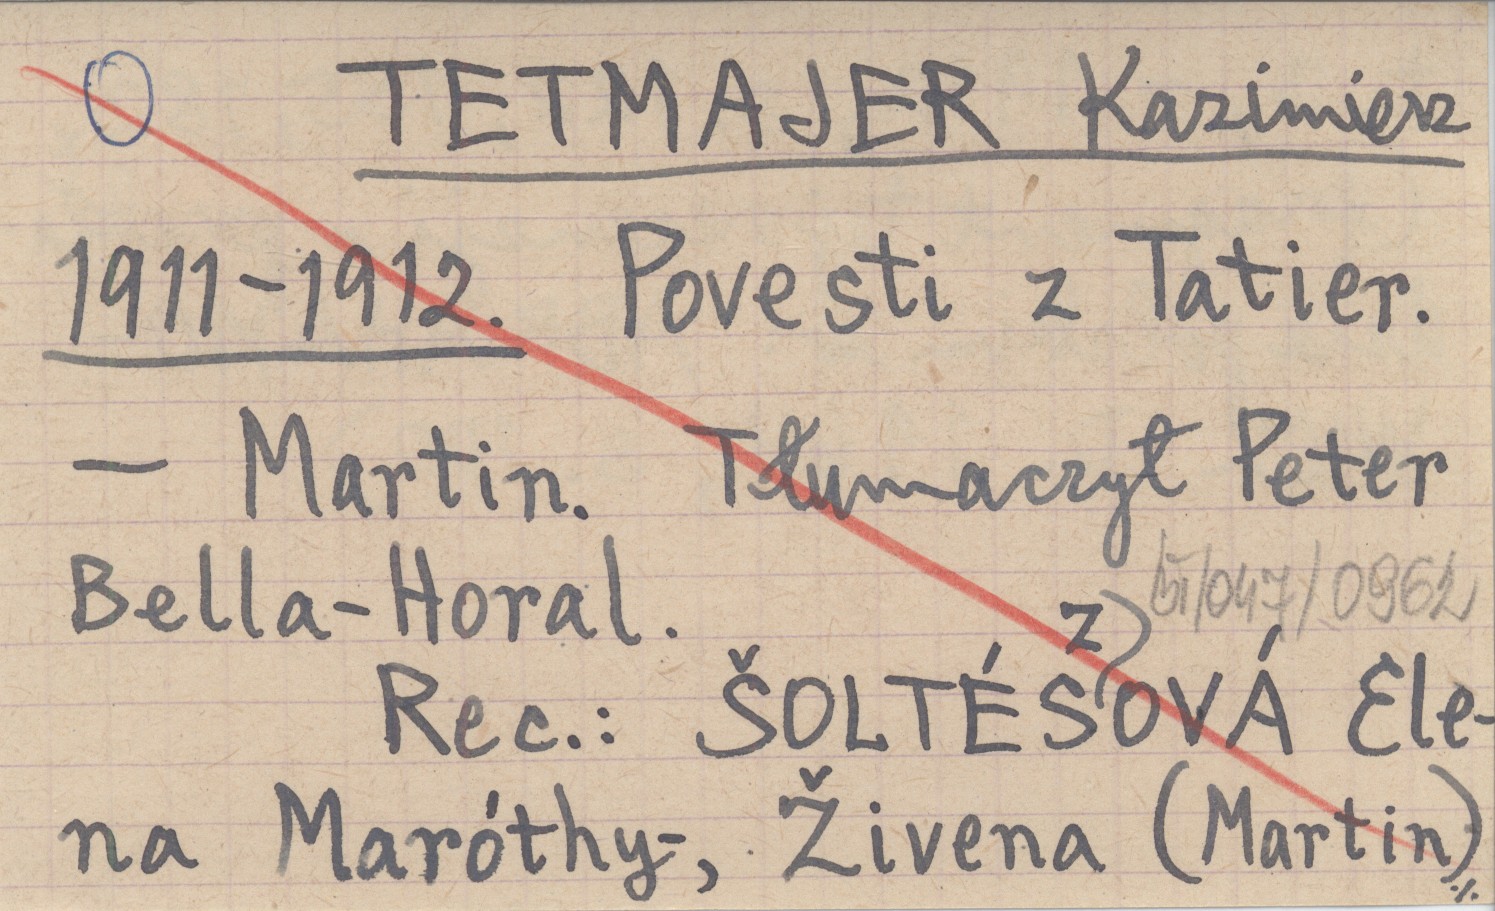 TETMAJER Kazimierz
1911-1912. Povesti z Tatier.
— Martin. Tłumaczył Peter
Bella-Horal.
Rec.: ŠOLTÉSzOVÁ Ele-
na Maróthy-, Živena (Martin)